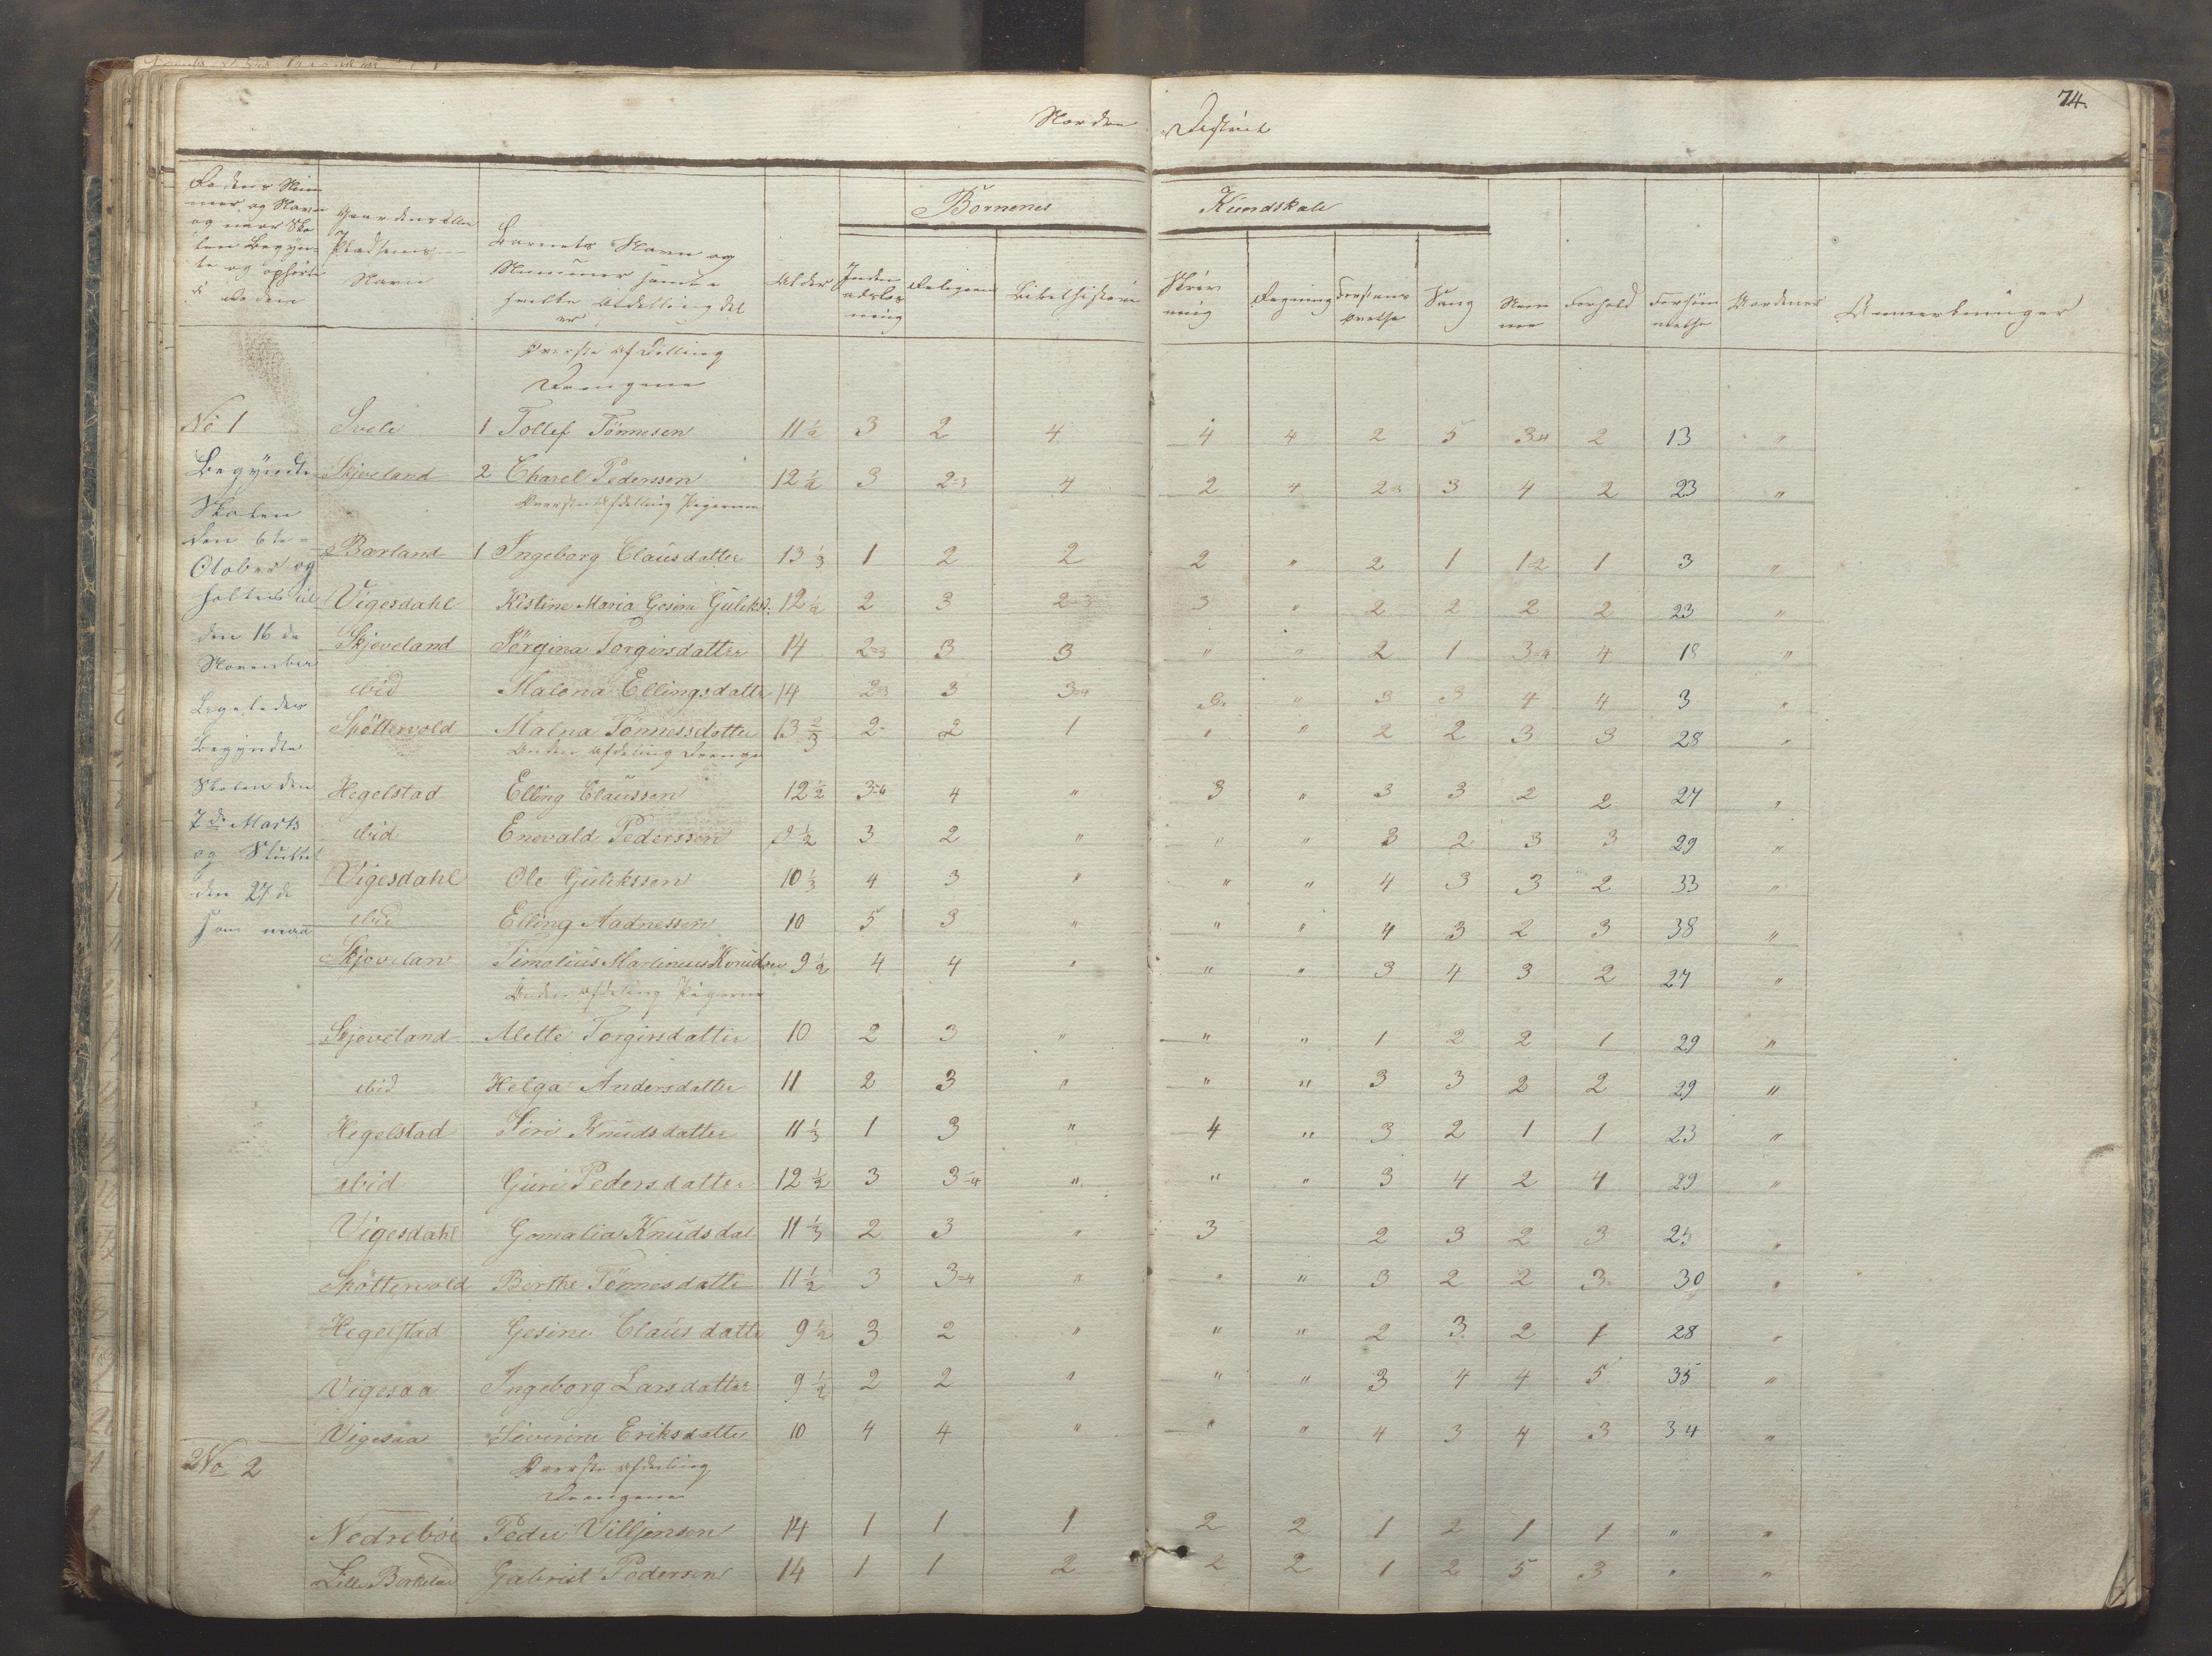 74.
Nordre District
Rodens Num
mer og Navn
og naar Sko
len Begyn-
te og ophörte
i Roden
Gaardens eller
Pladsens
Navn
Barnets Navn og
Nummer samt i
hvilke Afdelling det
er
Alder
Inden
adslæs
ning
Religion
Börnenes Kundskab
Bibelhistorie
Skriv
ning
Regning
Forstans
övelse
Sang
Nem
me
Forhold
Forsöm
melse
Anmerkninger
Överste Afdelling
Drengene
No 1 Svele 1 Tollef Tönnesen 11 ½ 3 2 4 4 4 2 5 3=4 2 13 "
Begyndte Skjæveland 2 Charel Pederssen 12 ½ 3 2=3 4 2 4 2=3 3 4 2 23 "
Skolen Överste Afdelling Pigerne
den 6te Barland 1 Ingeborg Clausdatter 13 ⅓ 1 2 2 2 " 2 1 1=2 1 3 "
Otober og
holtes til Vigesdahl Kistine Maria Gesine Guliksd: 12 ½ 2 3 2=3 3 " 2 2 2 2 23 "
den 16 de Skjæveland Jörgina Torgirsdatter 14 2=3 3 3 " " 2 1 3=4 4 18 "
November
ibid Malena Ellingsdatte 14 2=3 3 3=4 3. " 3 3 4 4 3 "
Ligeledes
Spöttervold Malna Tönnessdatter 13 ⅔ 2 2 1 " " 2 2 3 3 28 "
Begyndte Anden Afdeling Drenge
Skolen den Hegelstad Elling Claussen 12 ½ 3=4 4 " 3 " 3 3 2 2 27 "
7 de Marts ibid Enevald Pederssen ½ 3 2 " " " 3 2 3 3 29 "
og Sluttet
Vigesdahl Ole Gulikssen 10 ⅓ 4 3 " " " 4 3 3 2 33 "
den 27 de
ibid Elling Aadnessen 10 5 3 " " " 4 3 2 3 38 "
Skjævelan Timolius Martinius Knudsen 9 ½ 4 4 " " " 3 4 3 2 27 "
Anden Afdeling Pigerne
Skjæveland Mette Torgirsdatter 10 2 3 " " " 1 2 2 1 29 "
ibid Helga Andersdatter 11 2 3 " " " 3 3 2 2 29 "
Hegelstad Siri Knudsdatter 11 ⅓ 1 3 " 4 " 3 2 1 1 23 "
ibid Guri Pedersdatter 12 ½ 3 3=4 " " " 3 4 2 4 29 "
Vigesdahl Gomalia Knudsdat 11 ⅓ 2 3 " 3 2 3 2 3 25 "
Spöttervold Berthe Tönnesdatte 11 ½ 3 3=4 " " " 3 2 2 3 30 "
Hegelstad Gesine Clausdatte 9 ½ 3 2 " " " 2 3 2 1 28 "
Vigesaa Ingeborg Larsdatter 9 ½ 2 2 " " " 3 4 4 5 35 "
Vigesaa Siverine Eriksdatter 10 4 4 " " " 4 3 4 3 34 "
No 2 Överste Afdeling
Drengene
Nedreböe Peder Villjemsen 14 1 1 1 2 2 1 2 1 1 " "
Lille Gabriel Pedersen 14 1 1 2 2 2 1 2 5 3 " "